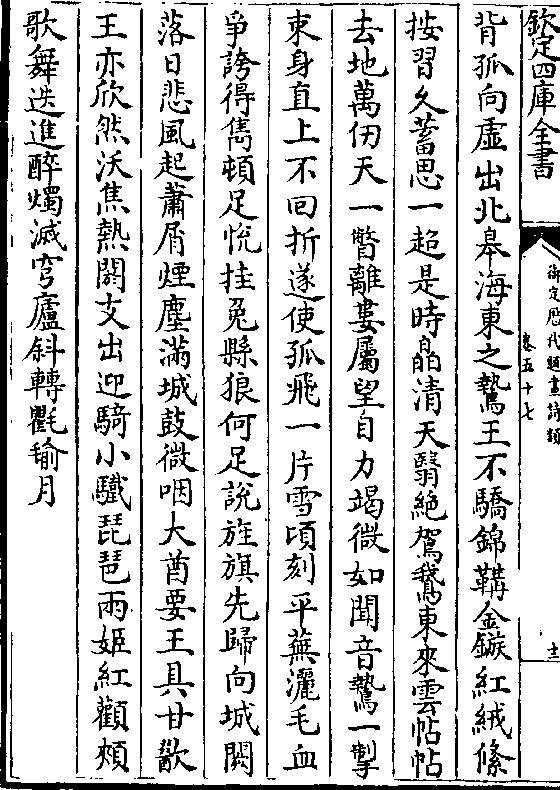 欽定四庫全書
御定歴代題畫詩類
卷五十七
十三
背孤向虛出北皋海東之鷙王不驕錦韝金鏃紅絨絛
按習久蓄思一超是時晶清天翳絶駕鵝東來雲帖帖
去地萬仞天一瞥離婁屬望自力竭微如聞音鷙一掣
束身直上不回折遂使孤飛一片雪頃刻平蕪灑毛血
爭誇得雋頓足悅挂兔縣狼何足說旌旗先歸向城闕
落日悲風起蕭屑煙塵滿城鼓微咽大酋要王具甘歠
王亦欣然沃焦熱閼支出迎騎小驖琵琶兩姬紅顴頰
歌舞迭進醉燭滅穹廬斜轉氍毹月